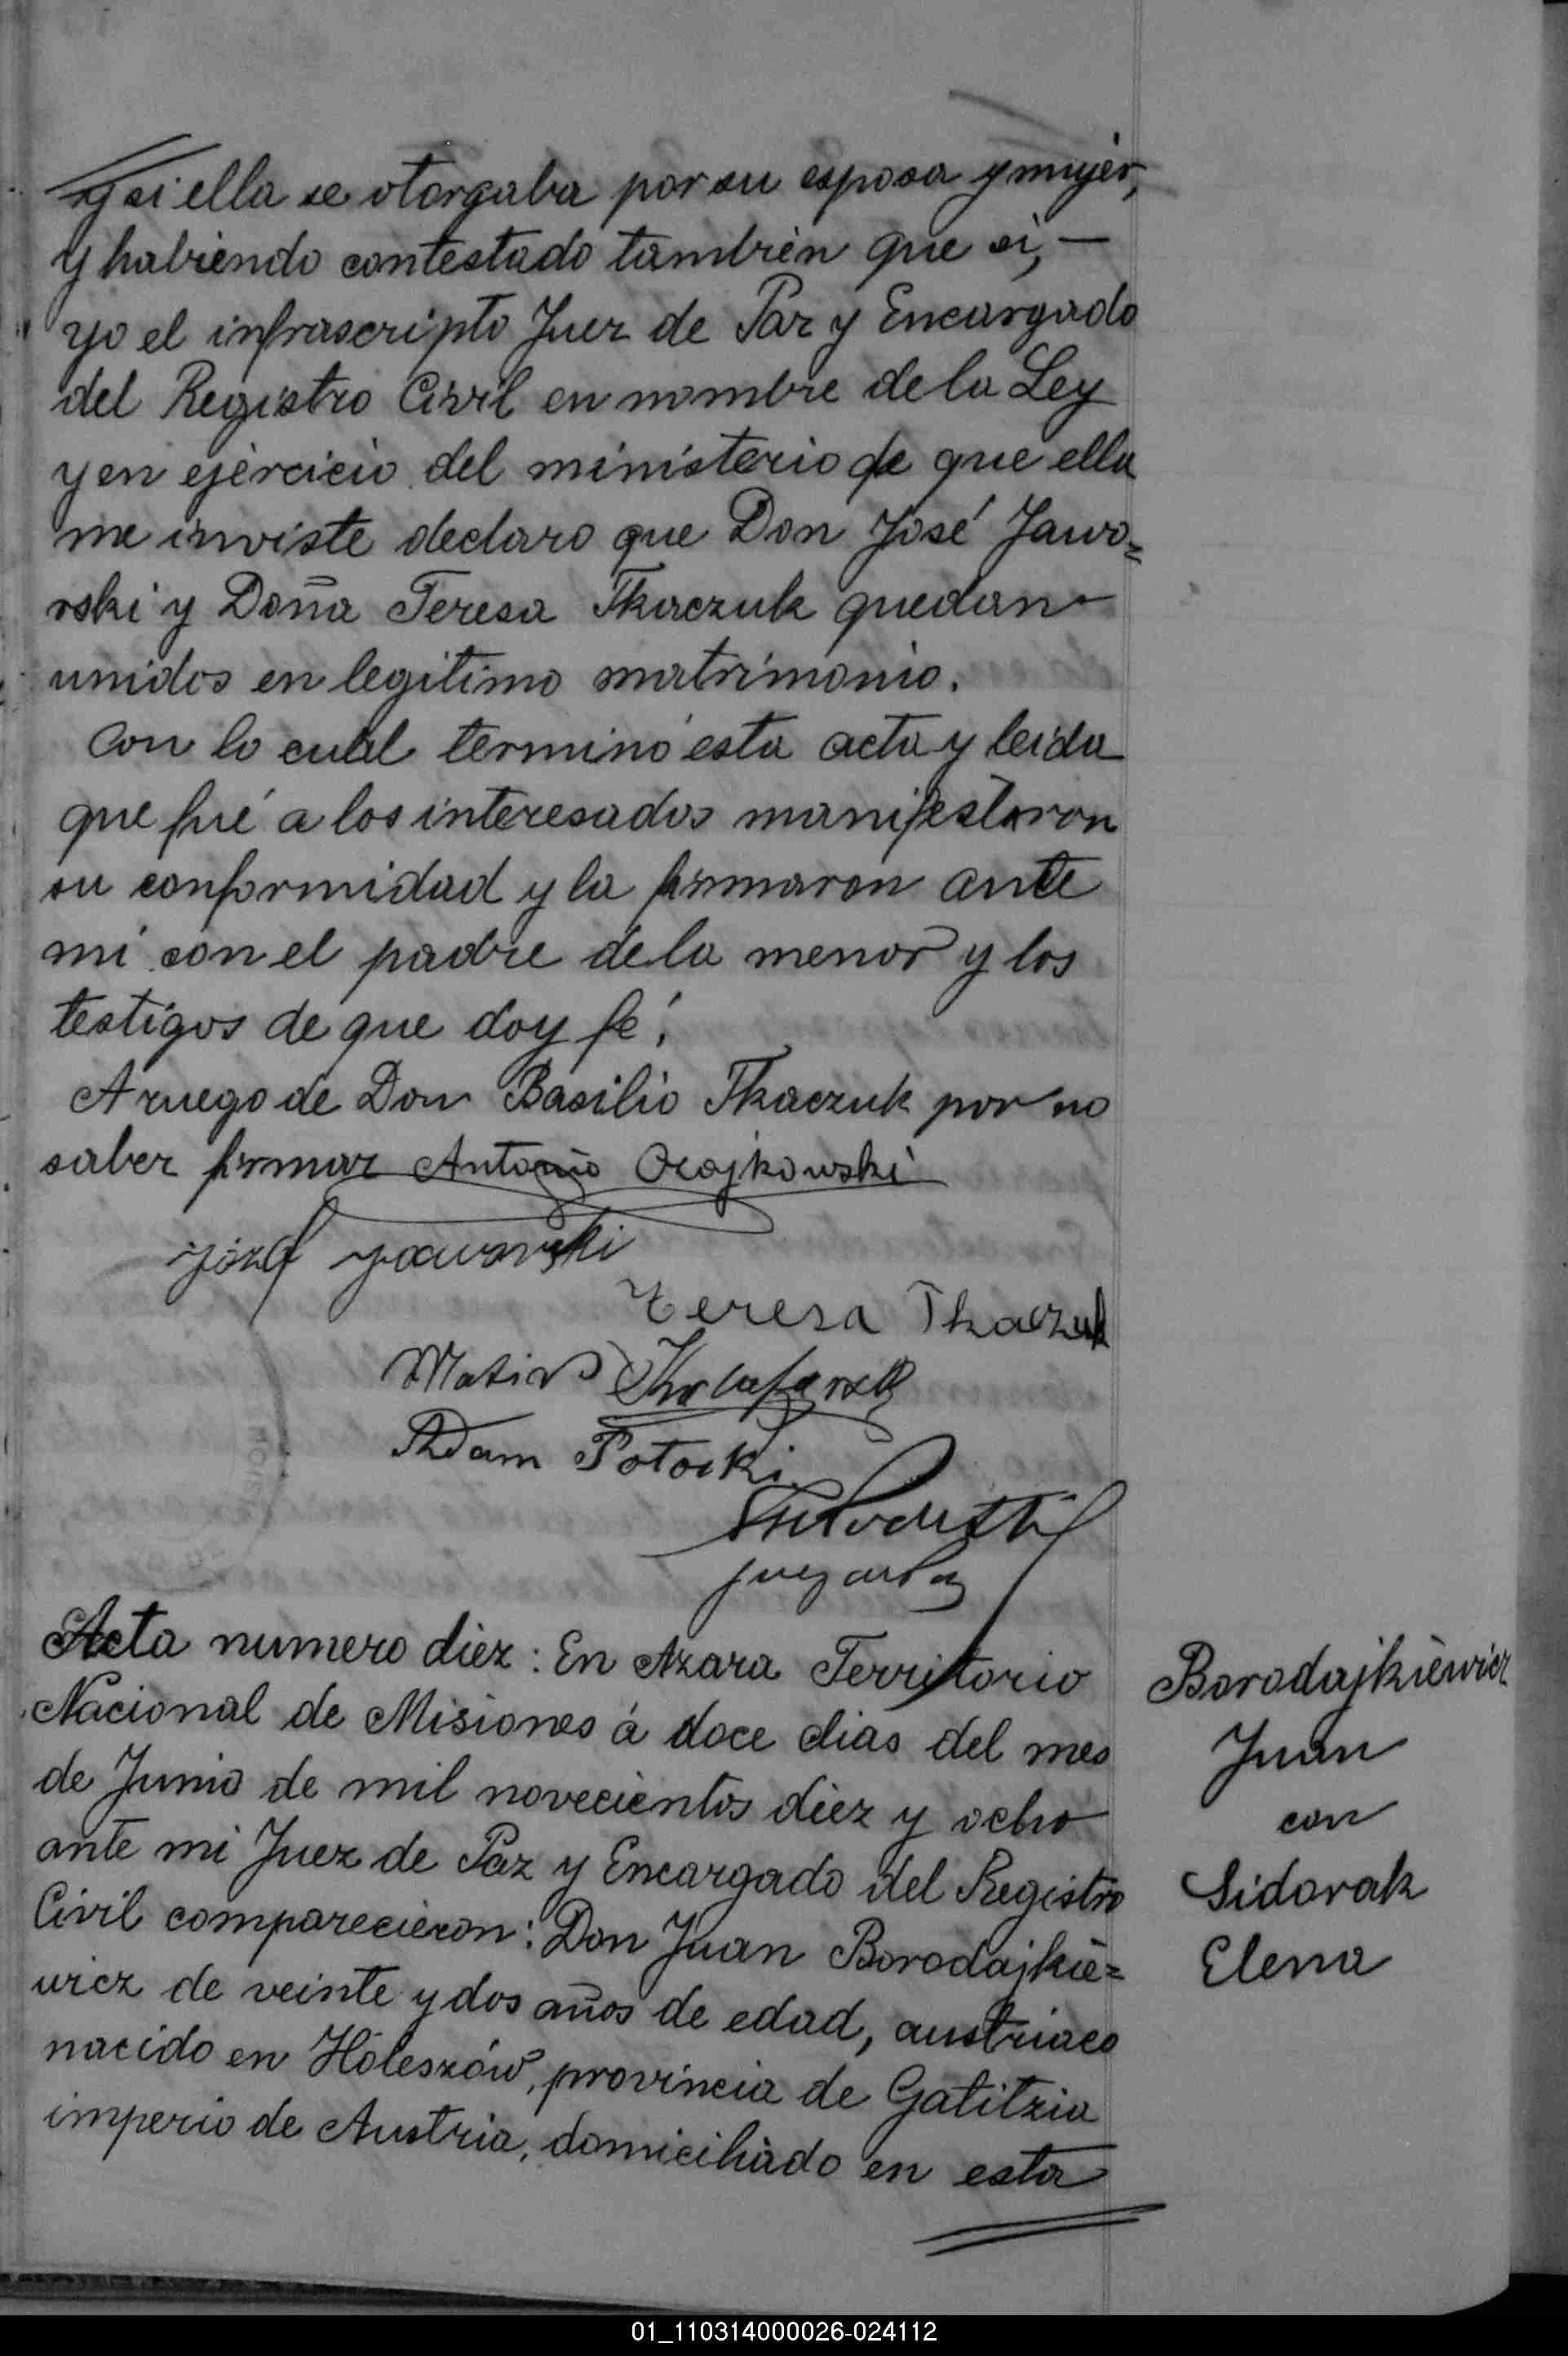 y si ella se otorgaba por su esposa y mujer,
y habiendo contestado tambien que si, —
yo el infrascripto Juez de Paz y Encargado
del Registro Civil en nombre de la Ley
y en ejercicio del ministerio de que ella
me inviste declaro que Don José Jawo=
rski y Doña Teresa Tkaczuk quedan
unidos en legitimo matrimonio.
Con lo cual terminó esta acta y leida
que fué a los interesados manifestaron
su conformidad y la firmaron ante
mi con el padre de la menor y los
testigos de que doy fé.
A ruego de Don Basilio Tkaczuk por no
saber firmar Antonio Czajkowski
Józef Jaworski
Teresa Tkaczuk
Matias
Adam Potocki
Juez de Paz
Acta numero diez: En Azara Territorio
Nacional de Misiones á doce dias del mes
de Junio de mil novecientos diez y ocho
ante mi Juez de Paz y Encargado del Registro
Civil comparecieron: Don Juan Borodajkie=
wicz de veinte y dos años de edad, austriaco
nacido en Holeszów, provincia de Galitzia
imperio de Austria, domiciliado en esta
Borodajkiewicz
Juan
con
Sidorak
Elena
01_110314000026-024112